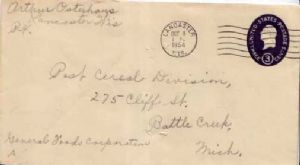 Arthur Osterhaus
Lancaster, Wis
R4.
LANCASTER
1954
WIS.
UNITED STATES POSTAGE
3
Post Cereal Division,
275 Cliff St.
Battle Creek,
Mich.
General Foods Corporation